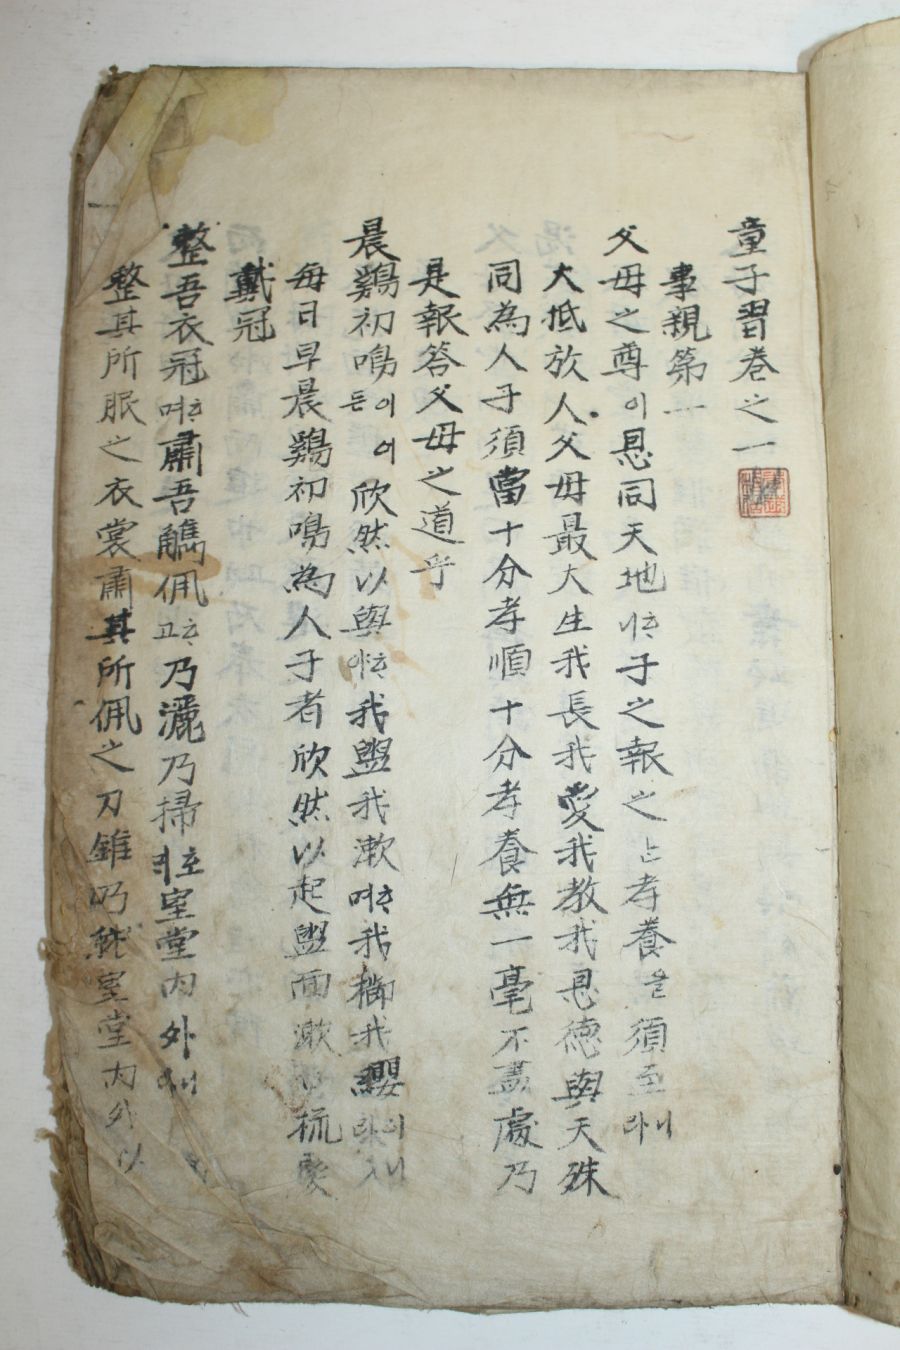 童子習卷之一
事親第一
父母之尊이恩同天地니子之報之孝養을須至라
大抵放人父母最大生我長我愛我教我恩德與天殊
同為人子須當十分孝順十分孝養無一毫不盡處乃
是報答父母之道乎
晨鷄初鳴이어든欣然以興야我盥我漱며我櫛我纓
每日早晨鷄初鳴為人子者欣然以起盥面漱 梳髮
戴冠
整吾衣冠며肅吾觿佩고乃灑乃掃室堂內外
整其所服之衣裳肅其所佩之刀錐乃 室堂內外以